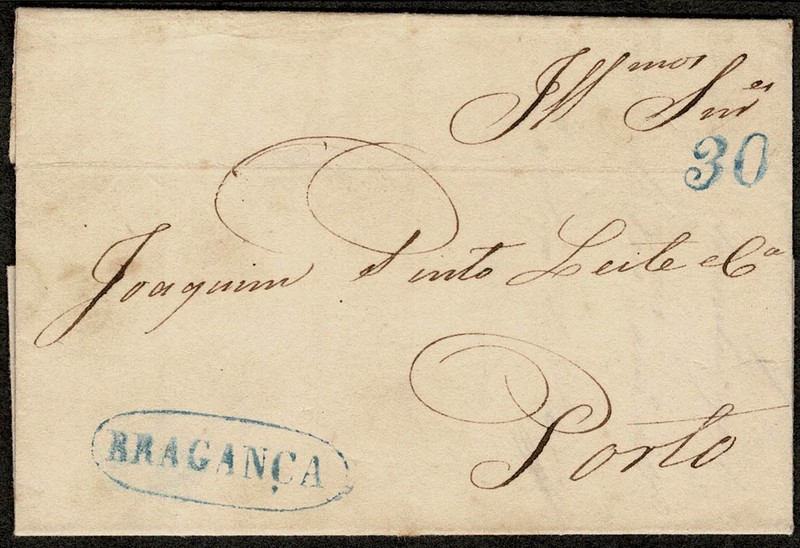 Illmos Snres
30
Joaquim Pinto Leite e Ca
Porto
BRAGANÇA